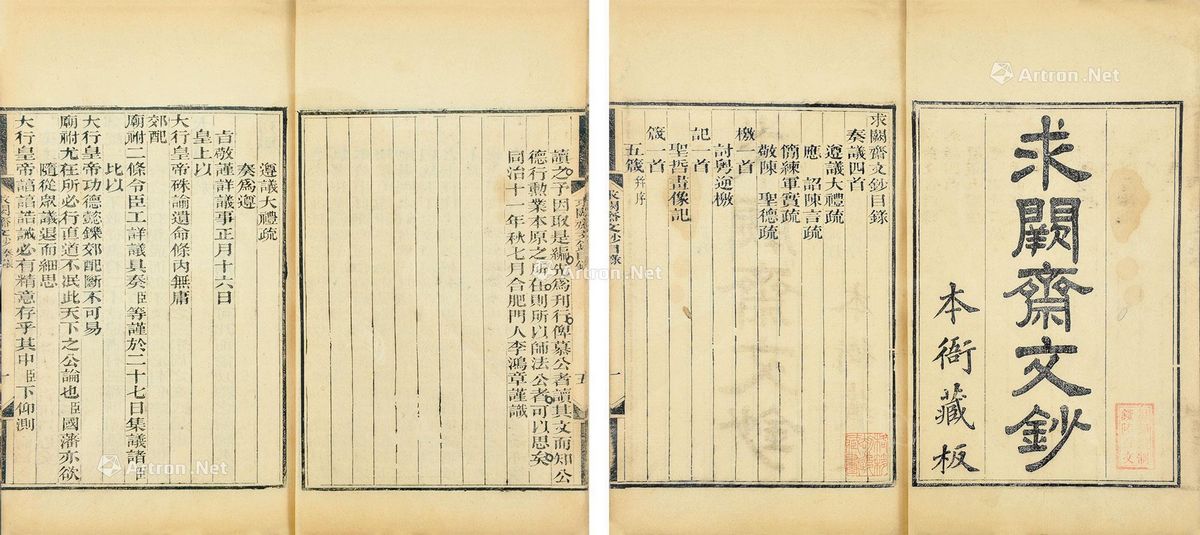 求闕齋文鈔
本衙藏板
求闕齋文鈔目錄
奏議四首
遵議大禮疏
應 詔陳言疏
簡練軍實疏
敬陳 聖德疏
檄一首
討粵逆檄
記一首
聖哲畫像記
箴一首
五箴 并序
一
讀之予因取是編先為刊行俾慕公者讀其文而知公
德行勳業本原之所在則所以師法公者可以思矣
同治十一年秋七月合肥門人李鴻章謹識
五
遵議大禮疏
奏為遵
旨敬謹詳議事正月十六日
皇上以
大行皇帝硃諭遺命條內無庸
郊配
廟祔二條令臣工詳議具奏臣等謹於二十七日集議諸臣
皆以
大行皇帝功德懿鑠郊配斷不可易
廟祔尤在所必行直道不泯此天下之公論也臣國藩亦欲
隨從眾議退而細思
大行皇帝諄諄誥誡必有精意存乎其中臣下仰測
一
Artron.Net
Artron.Net
Artron.Net
Artron.Net